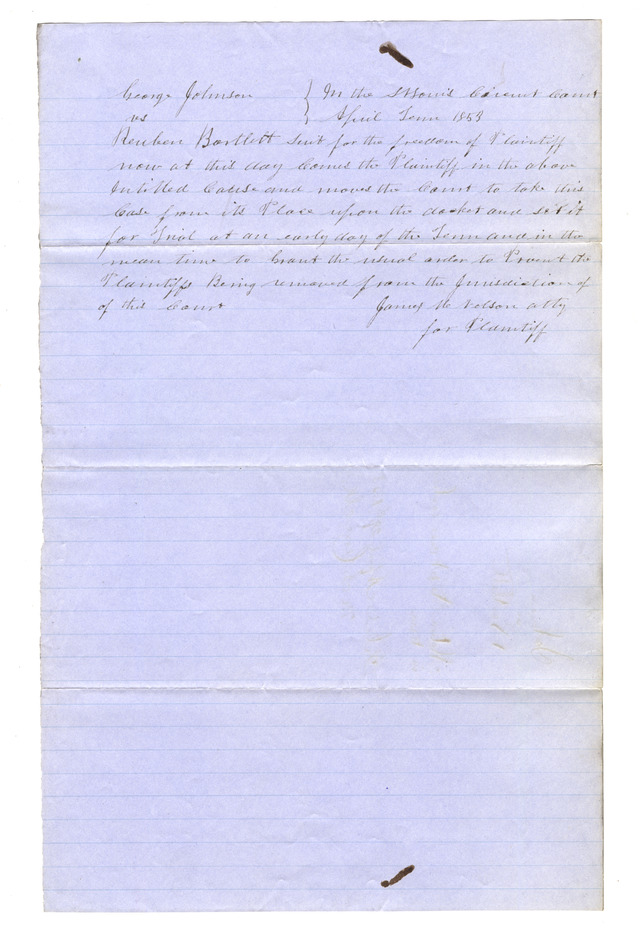 George Johnson } In the St Louis Circuit Court
vs } April Term 1853
Reuben Bartlett Suit for the freedom of Plaintiff
now at this day Comes the Plaintiff in the above
Intitled Cause and moves the Court to take this
Case from its Place upon the docket and set it
for Trial at an early day of the Term and in the
mean time to Grant the usual order to Prevent the
Plaintiffs Being removed from the Jurisdiction of
of this Court James Nelson atty
for Plaintiff